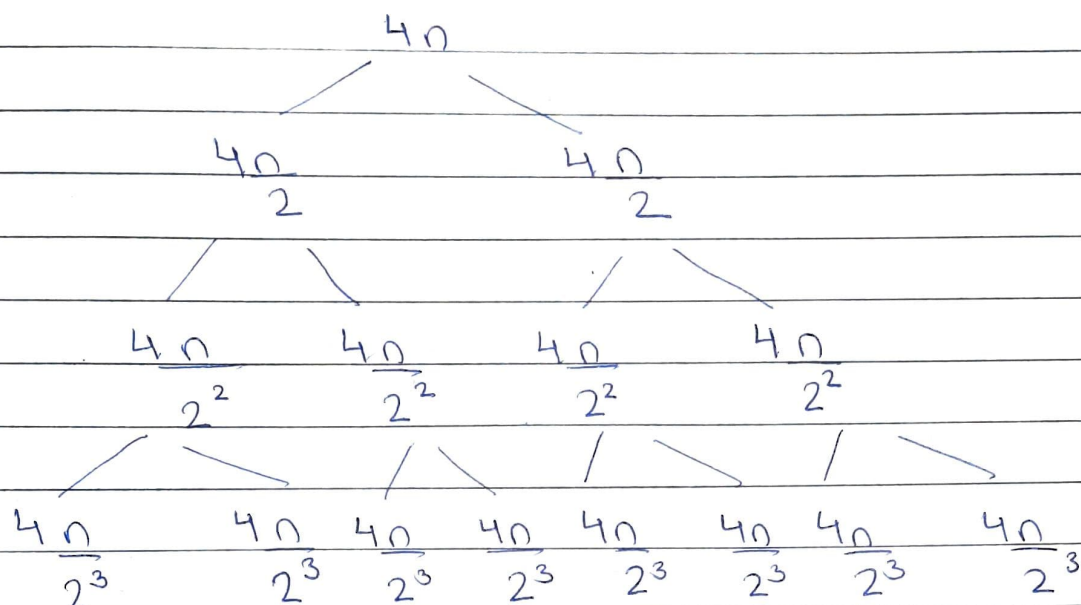 4n
4n/2 4n/2
4n/2² 4n/2² 4n/2² 4n/2²
4n/2³ 4n/2³ 4n/2³ 4n/2³ 4n/2³ 4n/2³ 4n/2³ 4n/2³